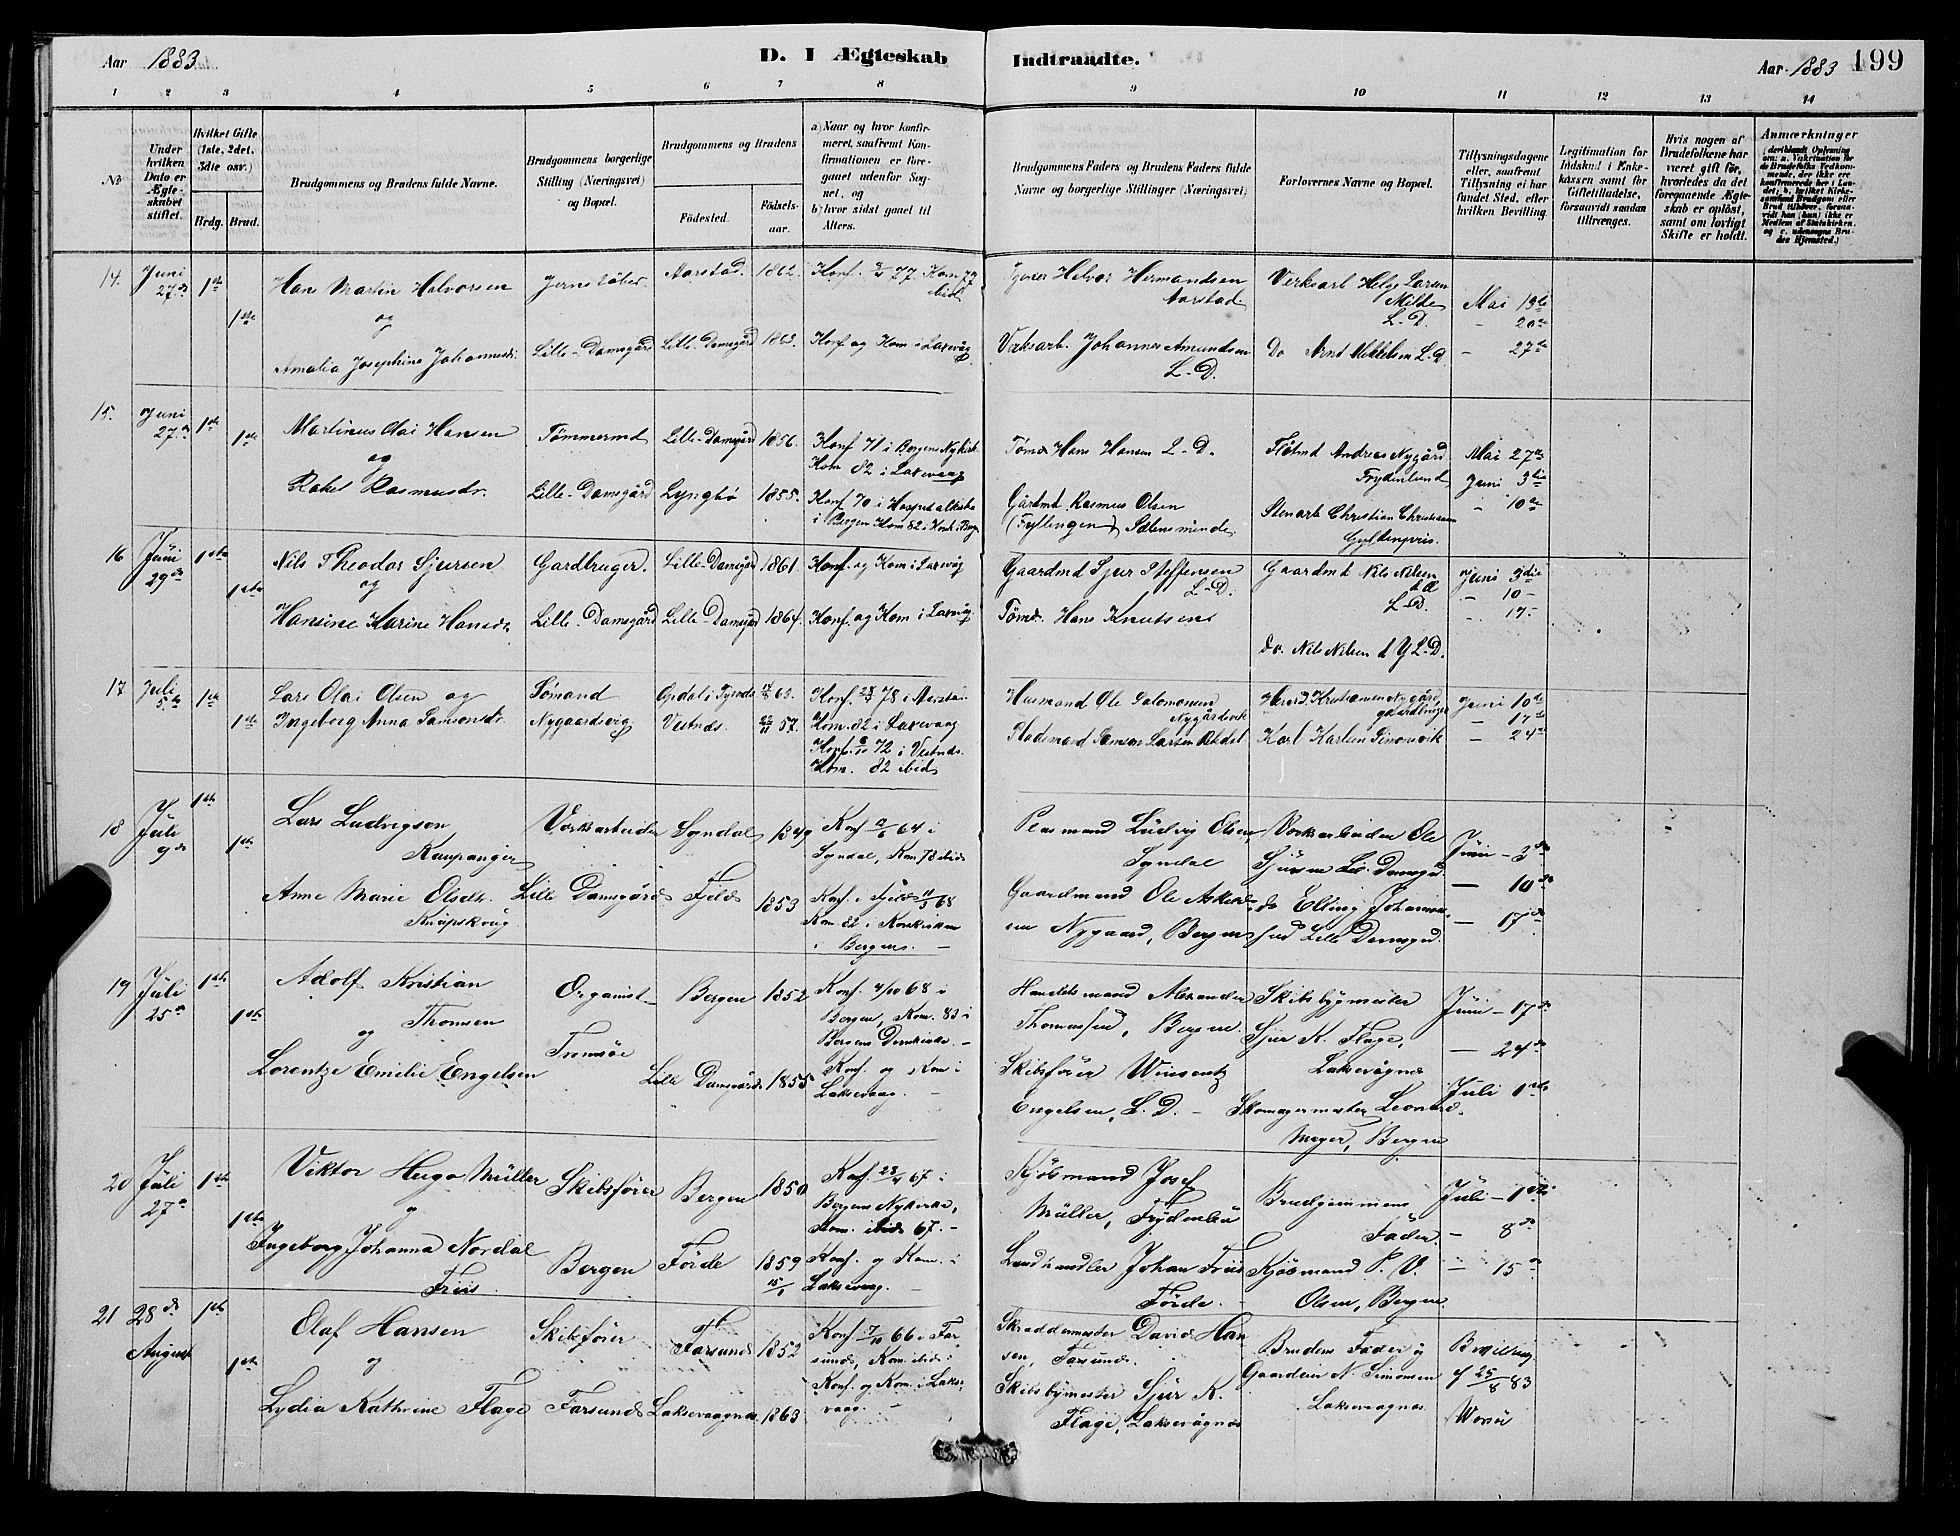 Aar 1883. D. I Ægteskab Indtraadte. Aar 1883 199
1 2 3 4 5 6 7 8 9 10 11 12 13 14
No
Under hvilken Dato er Ægteskabet stiftet.
Hvilket Gifte (1ste, 2det, 3die osv.)
Brdg. Brud.
Brudgommens og Brudens fulde Navne.
Brudgommens borgerlige Stilling (Næringsvei) og Bopæl.
Brudgommens og Brudens
Födested. Födsels-aar.
a) Naar og hvor konfirmeret, saafremt Konfirmationen er foregaaet udenför Sognet, og
b) hvor sidst gaaet til Alters.
Brudgommens Faders og Brudens Faders fulde Navne og borgerlige Stillinger (Næringsvei)
Forlovernes Navne og Bopæl.
Tillysningsdagene eller, saafremt Tillysning ei har fundet Sted, efter hvilken Bevilling.
Legitimation for Indskud i Enkekassen samt for Giftetilladelse, forsaavidt saadan tiltrænges.
Hvis nogen af Brudefolkene har været gift för, hvorledes da det foregaaende Ægteskab er oplöst, samt om lovligt Skifte er holdt.
Anmærkninger
14. Juni 27de 1ste Hans Martin Halvorsen Jernstöber Aarstad. 1862. Konf. 77 Kom 77 ibid. Halvor Hermandsen Aarstad Verksarb Helge Larsen Milde L-D. Mai 13de
1ste og - 20de
Amalia Josephine Johannesdr. Lille-Damsgård Lille-Damsgård 1863. Konf og Kom i Laxevåg Verksarb. Johannes Amundsen L-D. Do Arnt Mikkelsen L-D - 27de
15. Juni 27de 1ste 1ste Martinus Olai Hansen Tömmermd Lille-Damsgård 1856. Konf 71 i Bergens Nykirk. Kom 82 i Laxevaag Tömd Hans Hansen L-D. Flötmd Andreas Nygård Frydenlund Mai 27de
og Juni 3die
Rakel Rasmusdr. Lille-Damsgård Lyngbö 1855. Konf 70 i Hospitalkirke i Bergen Kom 82 i Gårdmd Rasmus Olsen (Fyllingen) Sælensminde Stenarb Christian Christiansen Gyldenpris. - 10de
16 Juni 29de 1ste Nils Theodor Sjursen Gardbruger. Lille-Damsgård 1861. Konf. og Kom i Laxevåg Gaardmd Sjur Steffensen L-D. Gaardmd Nils Nilsen d Æ L-D. Juni 3die
1ste og - 10 -
Hansine Karine Hansdr. Lille-Damsgård Lille-Damsgård 1864. Konf. og Kom i Laxvåg Tömd. Hans Knutsen Do. Nils Nilsen d Y L-D. - 17 -
17 Juli 5te 1ste Lars Olai Olsen og Sömand 63. Konf. 78 i Kom. 82 i Laxevaag Husmand Ole Salomonsen Nygårdsvik Kristiansen Nygård gaardbruger Juni 10de
1ste Ingeborg Anna Samsonsdr. Nygaardsvig Vestnæs. 57. Konf. 72 i Vestnæs. Kom. 82 ibid Samson Larsen Karl Karlsen Simonsvik - 17de
- 24de
18 Juli 9de 1ste Lars Ludvigsen Kaupanger Verksarbeider Sogndal 1849 Konf 64 i Sogndal, Kom. 78 ibid. Plasmand Ludvig Olsen, Sogndal Verksarbeider Ole Sjursen Lil. Damsgd. Juni - 3de
1ste Anne Marie Olsdtr. Knapskoug. Lille Damsgård Fjeld 1853 Konf. i Fjeld 68 Kom 82 i Korskirken i Bergen. - Gaardmand Ole Nygaard, Bergen do Elling Lille Damsgd. - 10de
- 17de
19 Juli 25de 1ste Adolf Kristian Thomsen Organist Bergen 1852 Konf. 4/10 68 i Bergen, Kom. 83 i Bergens Domkirke. - Handelsmand Alexander Thomassen, Bergen. Skibsbygmester Sjur K. Flage, Laksevågnæs Juni - 17de
1ste og Tromsöe - 24de
Lorentze Emilie Engelsen Lille Damsgård 1855 Konf. og Kom i Laksevaag. - Skibsförer Winsentz Engelsen, L.D. - Skomagermester Leonard Meyer, Bergen Juli 1ste
20 Juli 27de 1ste Viktor Hugo Müller Skibsförer Bergen 1850 Konf 23/4 67 i Bergens Nykirke, Kom. ibid. 67. - Kjöbmand Josef Müller, Frydenbö Brudgommens Fader. Juli - 1ste
1ste og - 8de
Ingeborg Johanna Nordal Friis Bergen Förde 1859 15/1 Konf. og Kom. i Laksevaag. - Landhandler Johan Friis Förde. - Kjöbmand P. V. Olsen, Bergen. - 15de
21 28de August 1ste Olaf Hansen Skibsförer Farsund 1852 Konf 7/10 66 i Farsund, Kom. ibid. Skræddermester David Hansen, Farsund. Brudens Fader og Bevilling
1ste og Gaardeier N. Simonsen af 25/8 83
Lydia Kathrine Flage Farsund Laksevaagnæs 1863 Konf. og Kom. i Laksevaag. - Skibsbymester Sjur K. Flage, Laksevågnæs Laksevaagnæs